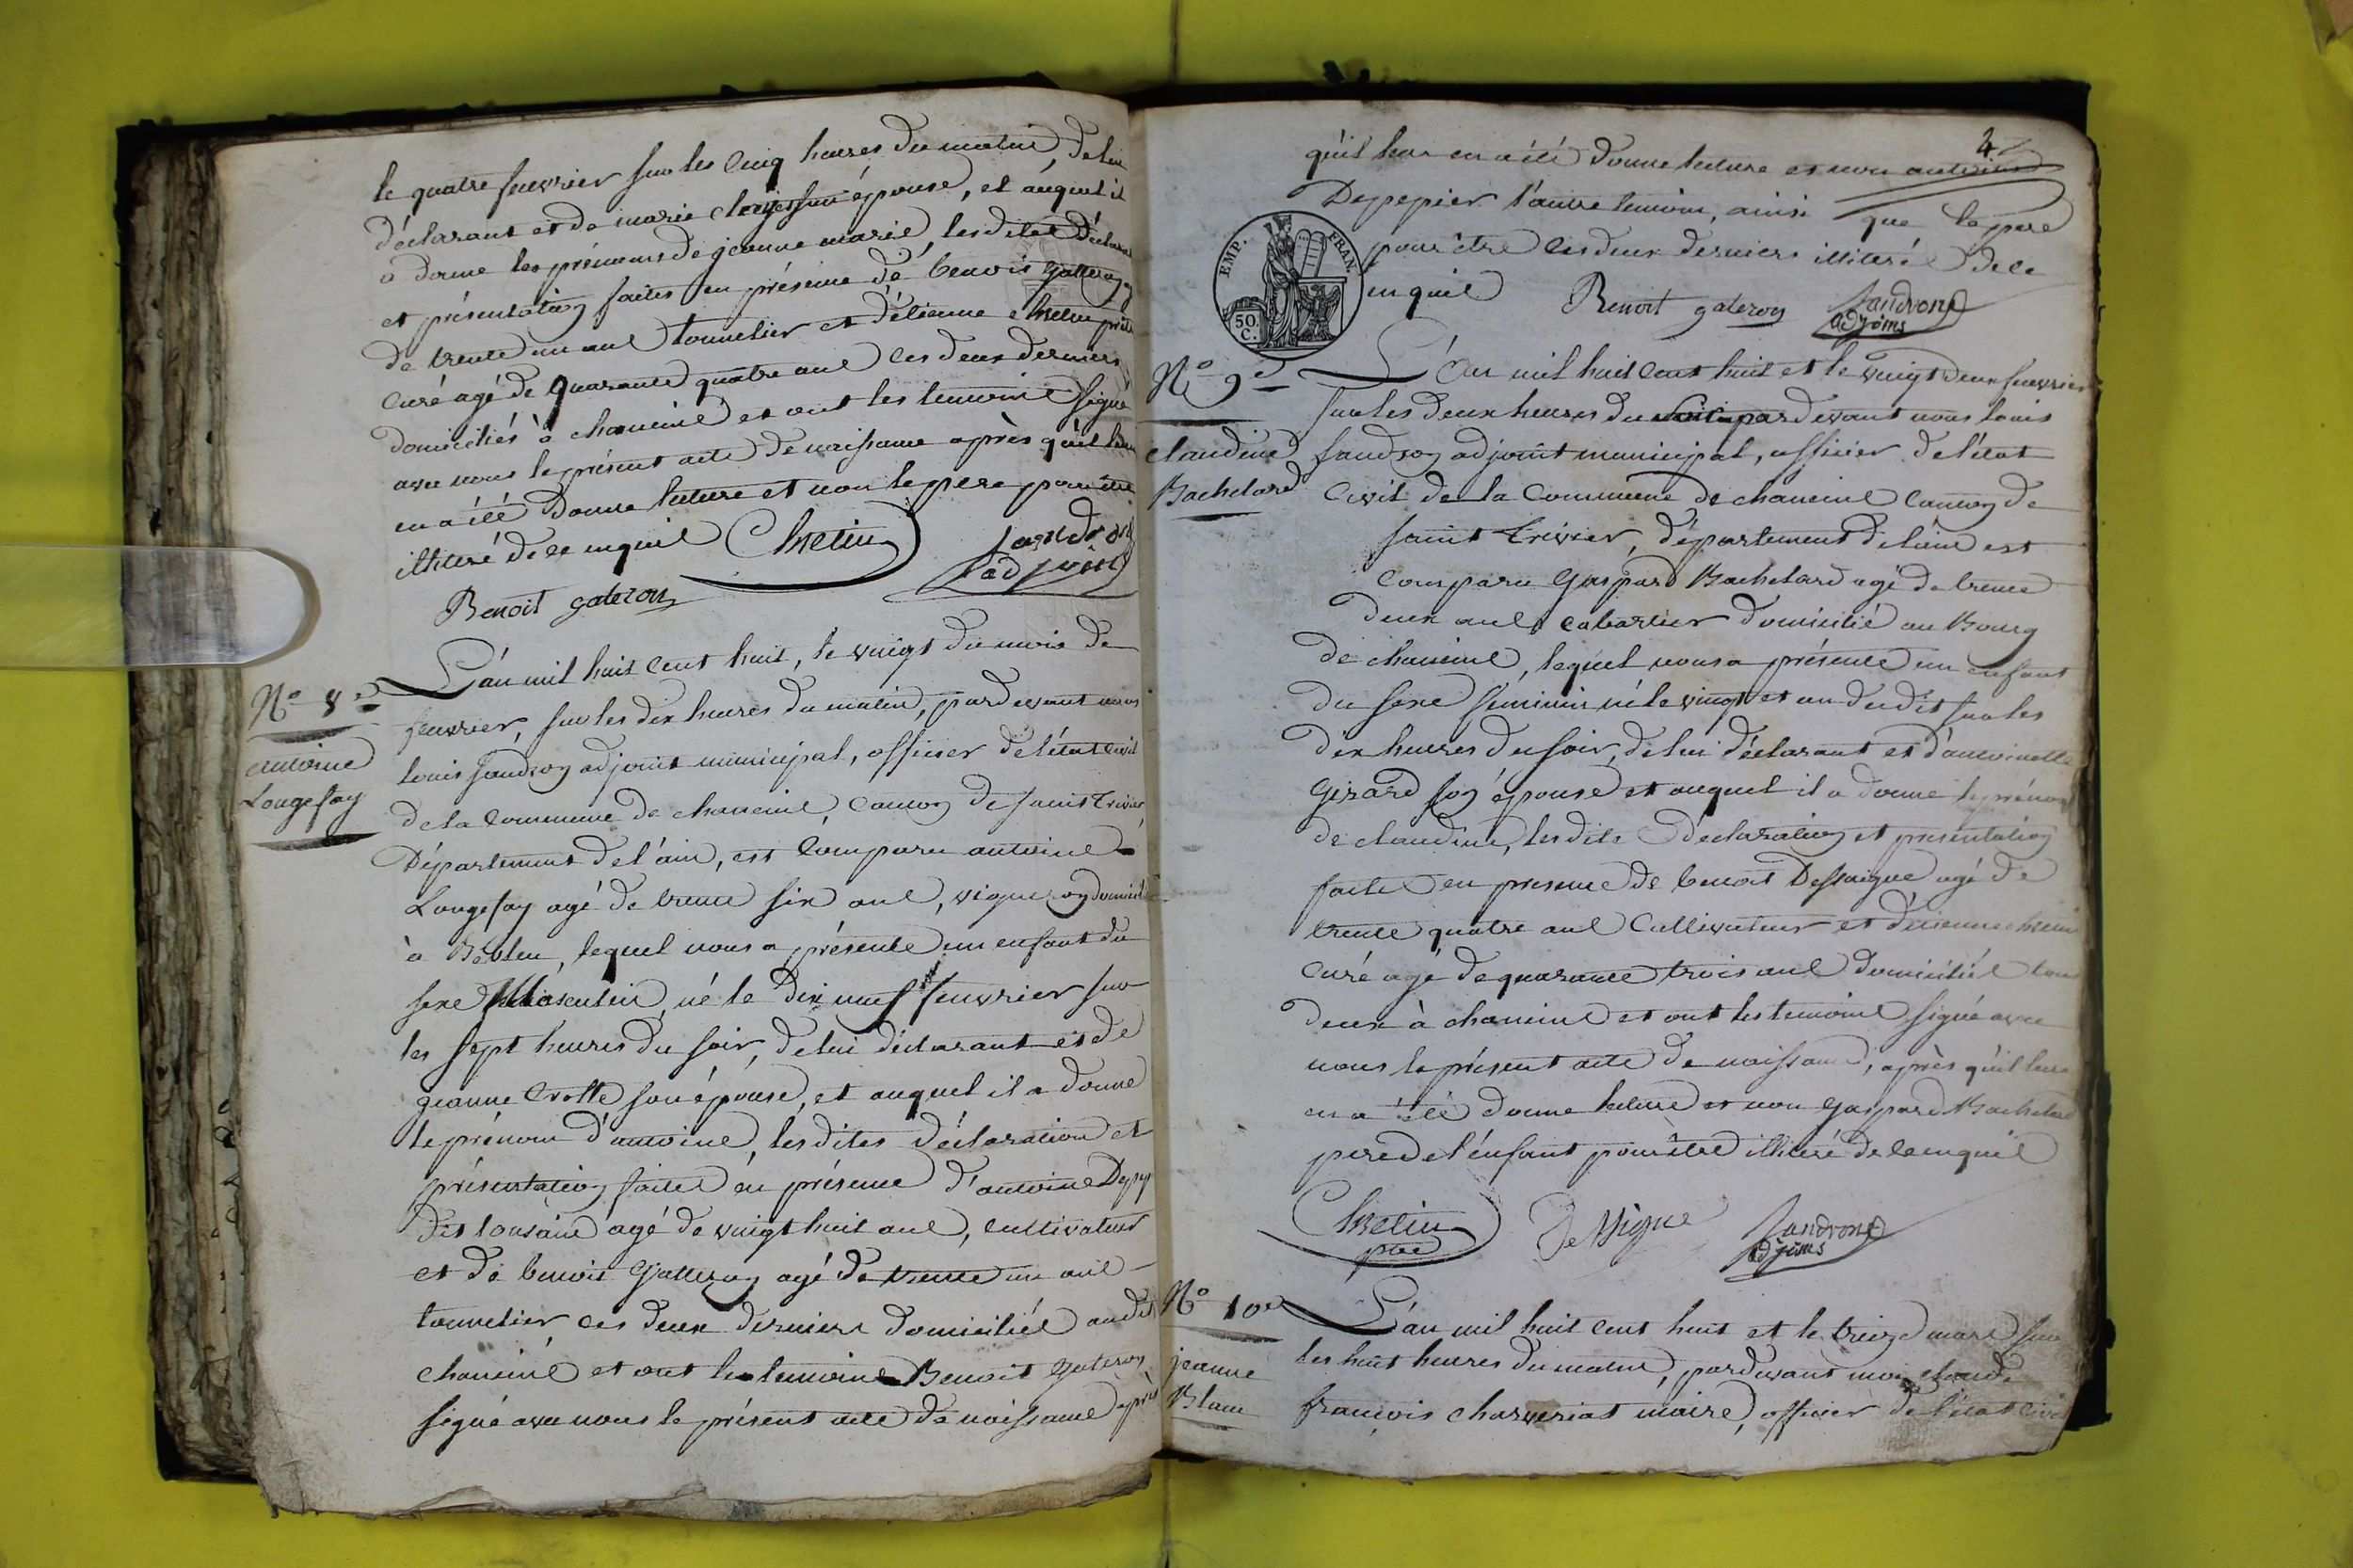 le quatre feuvrier sur les cinq heures du matin, de lui
déclarant et de marie son épouse, et auquel il
a donné les prénoms de jeanne marie, les dites déclaration
et présentation faites en présence de benoit gatteron
de trente un ans tonnelier et d'étienne chretin prêtre
curé agé de quarante quatre ans ces deux derniers
domiciliés à chaneins et ont les temoins signé
avec nous le présent acte de naissance après qu'il leur
en a été donné lecture et non le pere pour être
illiteré de ce enquis Chretin Jandron
adjoint
Benoit gateron
N.o 8.e
Antoine
Longefay
L'an mil huit cent huit, le vingt du mois de
feuvrier, sur les dix heures du matin, pardevant nous
louis jandron adjoint municipal, officier de l'état civil
de la commune de chaneins, canton de saint trivier,
Département de l'ain, est comparu antoine
Longefay agé de trente six ans, vigneron domicilié
à, lequel nous a présenté un enfant du
sexe Masculin, né le dix neuf feuvrier sur
les sept heures du soir, de lui déclarant et de
jeanne crotte son épouse, et auquel il a donné
le prénom d'antoine, les dites déclaration et
présentation faites en présence d'antoine
dit agé de vingt huit ans, cultivateur
et de benoit gatteron agé de trente un ans
tonnelier ces deux derniers domiciliés audit
chaneins et ont les temoins Benoit gateron
signé avec nous le présent acte de naissance après
4
qu'il leur en a été donné lecture et non antoine
Depepier l'autre temoin, ainsi que le pere
pour être ces deux derniers illiteré de ce
enquis Benoit gateron Jandron
adjoins
EMP. FRAN.
50. C.
N.o 9.e
claudine
Bachelard
L'an mil huit cent huit et le vingt deux feuvrier
sur les deux heures du soir pardevant nous louis
Jandron adjoint municipal, officier de l'état
civil de la commune de chaneins canton de
saint trivier, département de l'ain est
comparu gaspard Bachelard agé de trente
deux ans cabartier domicilié au Bourg
de chaneins, lequel nous a présenté un enfant
du sexe féminin né le vingt et un dudit sur les
dix heures du soir, de lui déclarant et d'antoinette
Girard son épouse et auquel il a donné le prénom
de claudine, les dites déclaration et presentation
faite en presence de benoit Dessaigne agé de
trente quatre ans cultivateur et d'étienne chretin
curé agé de quarante trois ans domiciliés tous
deux à chaneins et ont les temoins signé avec
nous le présent acte de naissance, après qu'il leur
en a été donné lecture et non gaspard Bachelard
pere de l'énfant pour être illiteré de ce enquis
Chretin
ptre Jandron
adjoins
N.o 10.e
jeanne
Blanc
L'an mil huit cent huit et le treize mars sur
les huit heures du matin, pardevant moi claude
françois charveriat maire, officier de l'état civil